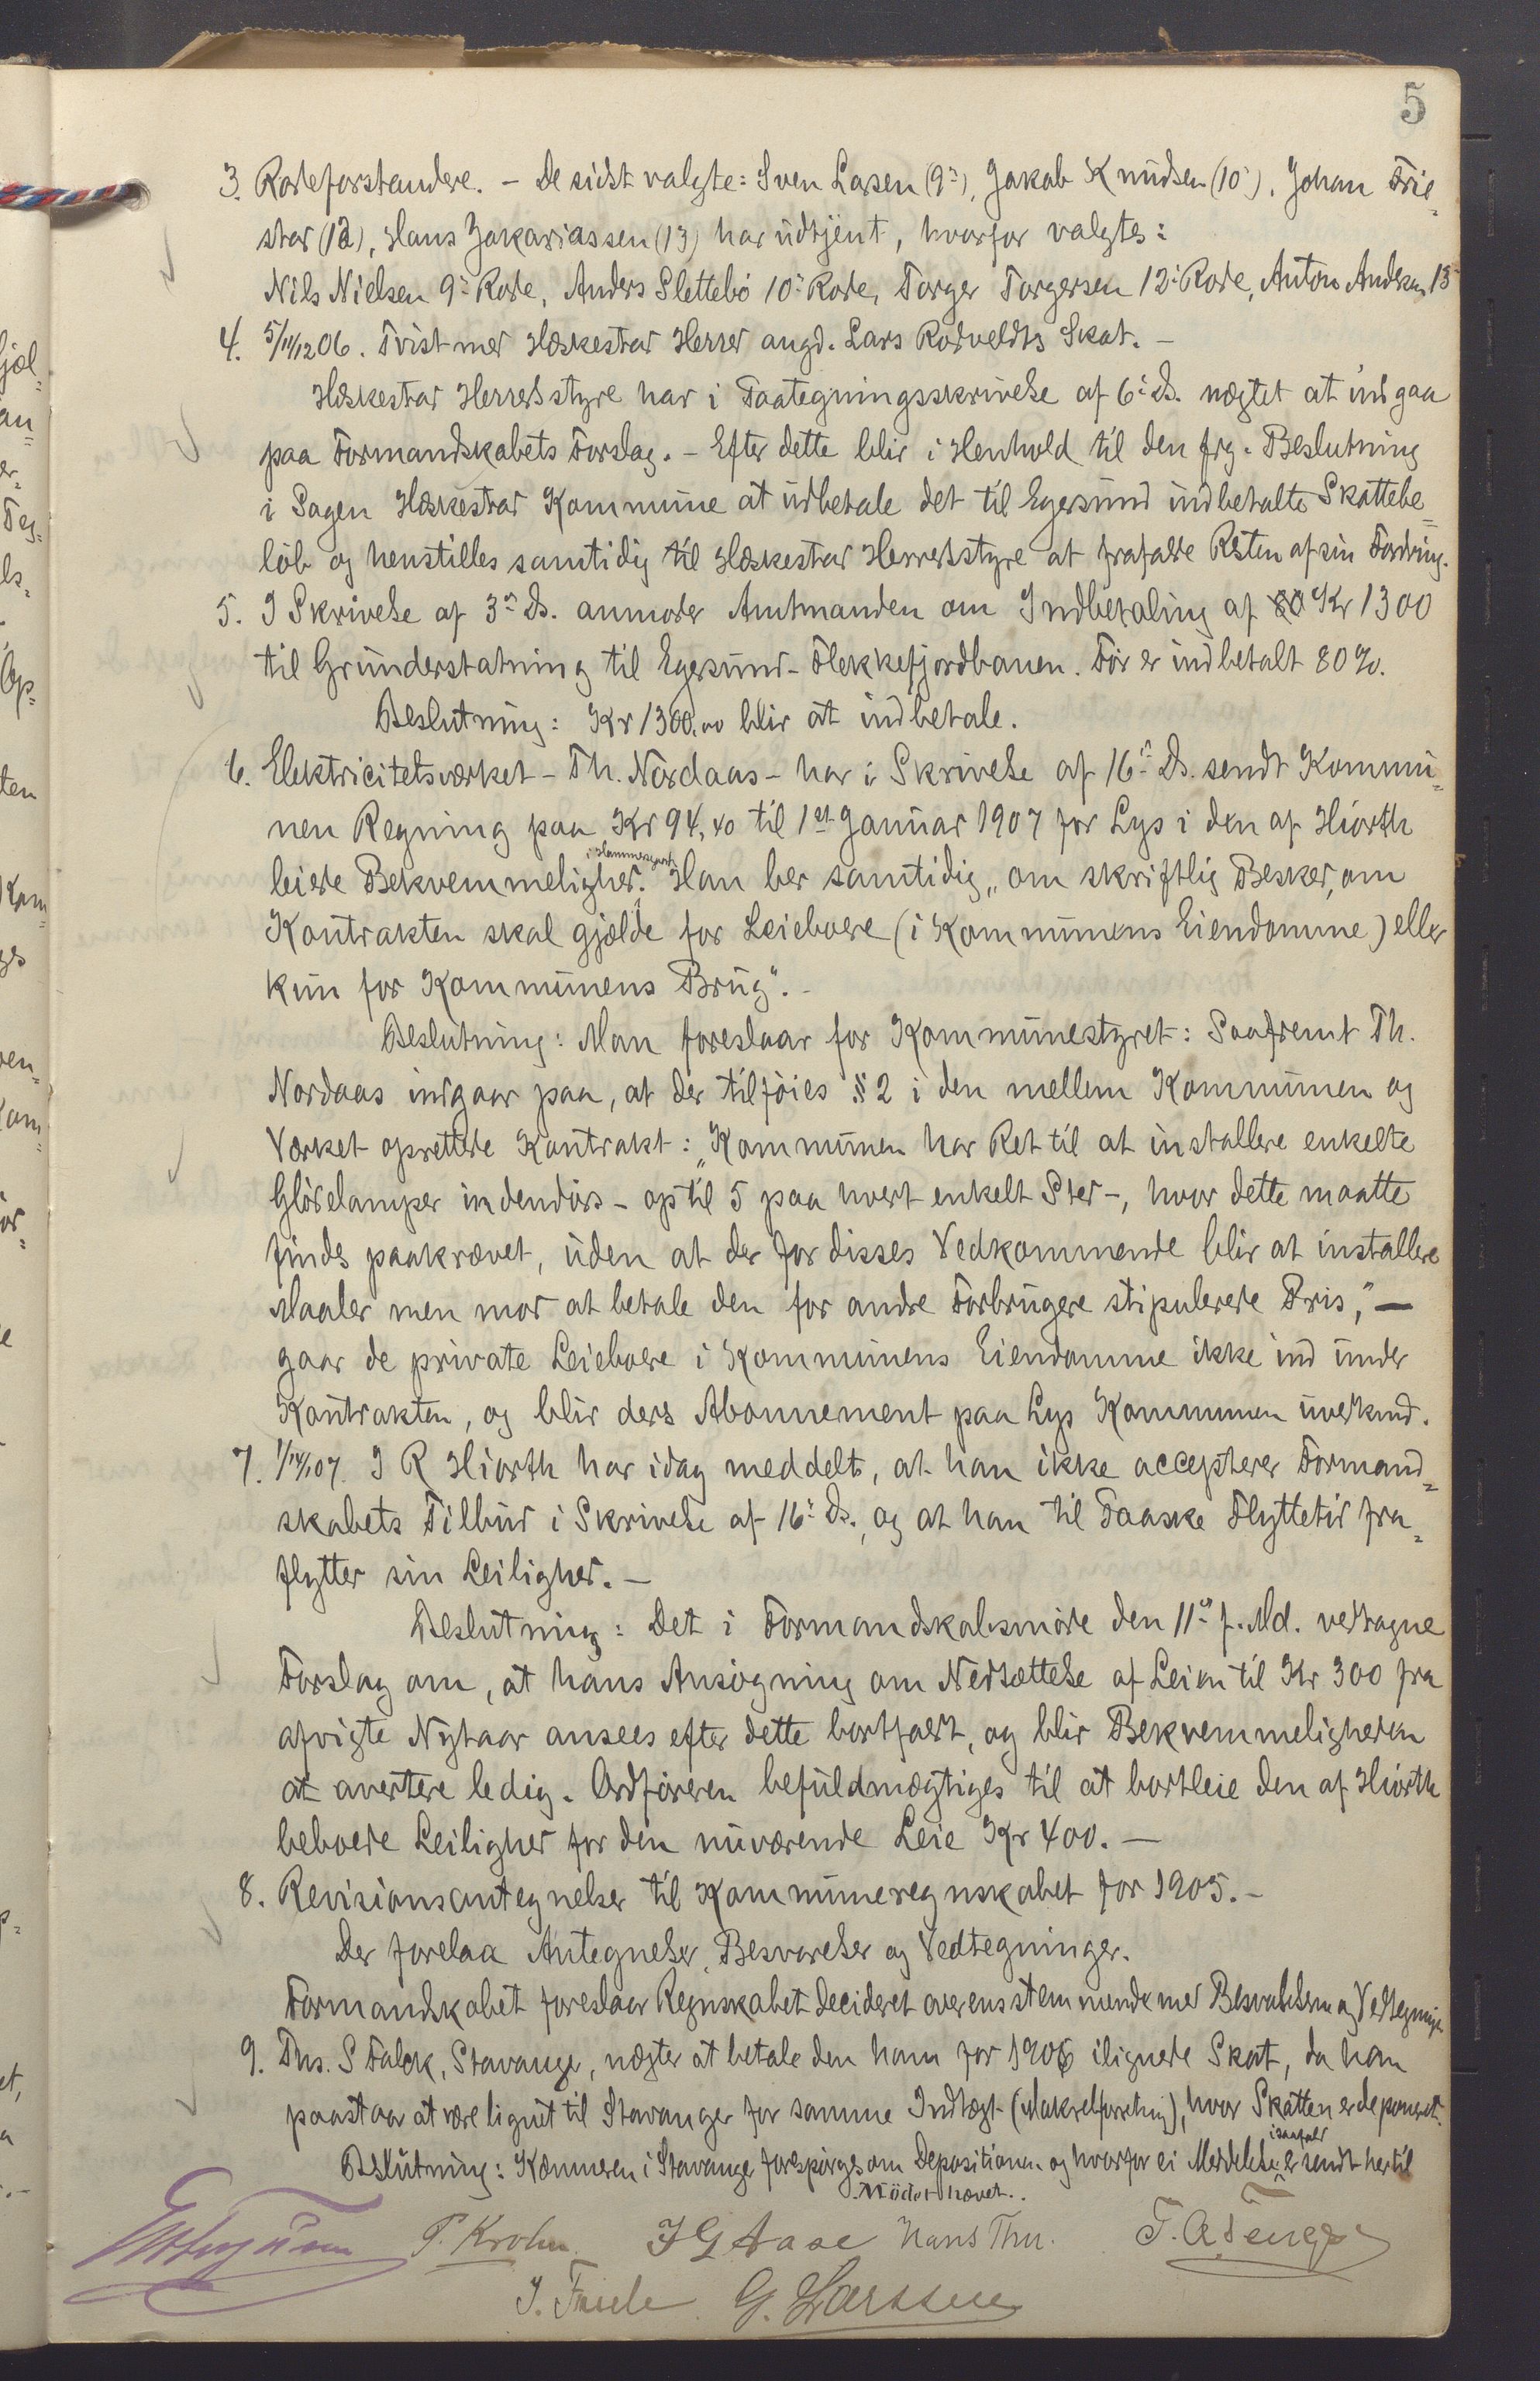 5
3. Rodeforstandere. - De sidst valgte: Sven Larsen (9de), Jakob Knudsen (10de), Johan Frie=
stad (12), Hans Zakariassen (13) har udtjent, hvorfor valgtes:
Nils Nielsen 9de Rode, Anders Slettebö 10de Rode, Torger Torgersen 12te Rode, Anton Andersen 13
4. 5/11/12 06. Tvist med Heskestad Herred angd. Lars Rodveldts Skat. -
Heskestad Herredsstyre har i Paategningsskrivelse af 6te ds. nægtet at indgaa
paa Formandskabets Forslag. - Efter dette blir i Henhold til den frg. Beslutning
i Sagen Heskestad Kommune at udbetale det til Egersund indbetalte Skattebe=
löb og henstilles samtidig til Heskestad Herredsstyre at frafalde Resten af sin Fordring.
5. I Skrivelse af 3die ds. anmoder Amtmanden om Indbetaling af Kr 1300
til Grunderstatning til Egersund-Flekkefjordbanen. För er indbetalt 80%.
Beslutning: Kr 1300.00 blir at indbetale.
6. Elektricitetsværket - Th. Nordaas - har i Skrivelse af 16de ds. sendt Kommu=
nen Regning paa Kr 94,40 til 1st Januar 1907 for Lys i den af Hiorth
leiede Bekvemmelighed. Han ber samtidig „om skriftlig Besked, om
Kontrakten skal gjælde for Leieboere (i Kommunens Eiendomme) eller
kun for Kommunens Brug". -
Beslutning: Man foreslaar for Kommunestyret: Saafremt Th.
Nordaas indgaar paa, at der tilföies § 2 i den mellem Kommunen og
Værket oprettede Kontrakt: „Kommunen har Ret til at installere enkelte
Glödelamper indendörs - optil 5 paa hvert enkelt Sted -, hvor dette maatte
findes paakrævet, uden at der for disses Vedkommende blir at installere
Maaler men mod at betale den for andre Forbrugere stipulerede Pris," -
gaar de private Leieboere i Kommunens Eiendomme ikke ind under
Kontrakten, og blir deres Abonnement paa Lys Kommunen uvedkomd.
7. 1/14/1 07. I R Hiorth har idag meddelt, at han ikke accepterer Formand=
skabets Tilbud i Skrivelse af 16de ds., og at han til Paaske Flyttetid fra=
flytter sin Leilighed. -
Beslutning: Det i Formandskabsmöde den 11te f. Md. vedtagne
Forslag om, at hans Ansögning om Nedsættelse af Leien til Kr 300 fra
afvigte Nytaar ansees efter dette bortfaldt, og blir Bekvemmeligheden
at avertere ledig. Ordföreren befuldmægtiges til at bortleie den af Hiorth
beboede Leilighed for den nuværende Leie Kr 400. -
8. Revisionsantegnelser til Kommuneregnskabet for 1905. -
Der forelaa Antegnelser, Besvarelser og Vedtegninger.
Formandskabet foreslaar Regnskabet decideret overensstemmende med Besvarelserne og Vedtegninger
9. Ths. S Falck, Stavanger, nægter at betale den ham for 1906 ilignede Skat, da han
paastaar at være lignet til Stavanger for samme Indtægt (Makrelforretning), hvor Skatten er deponeret.
Beslutning: Kæmneren i Stavanger forespörges om Depositionen og hvorfor ei Meddelelse isaafald er sendt hertil
Mödet hævet.
P. Krohn. J G Aase Hans Thu. T. A Tengs
J. Friele G. Larssen